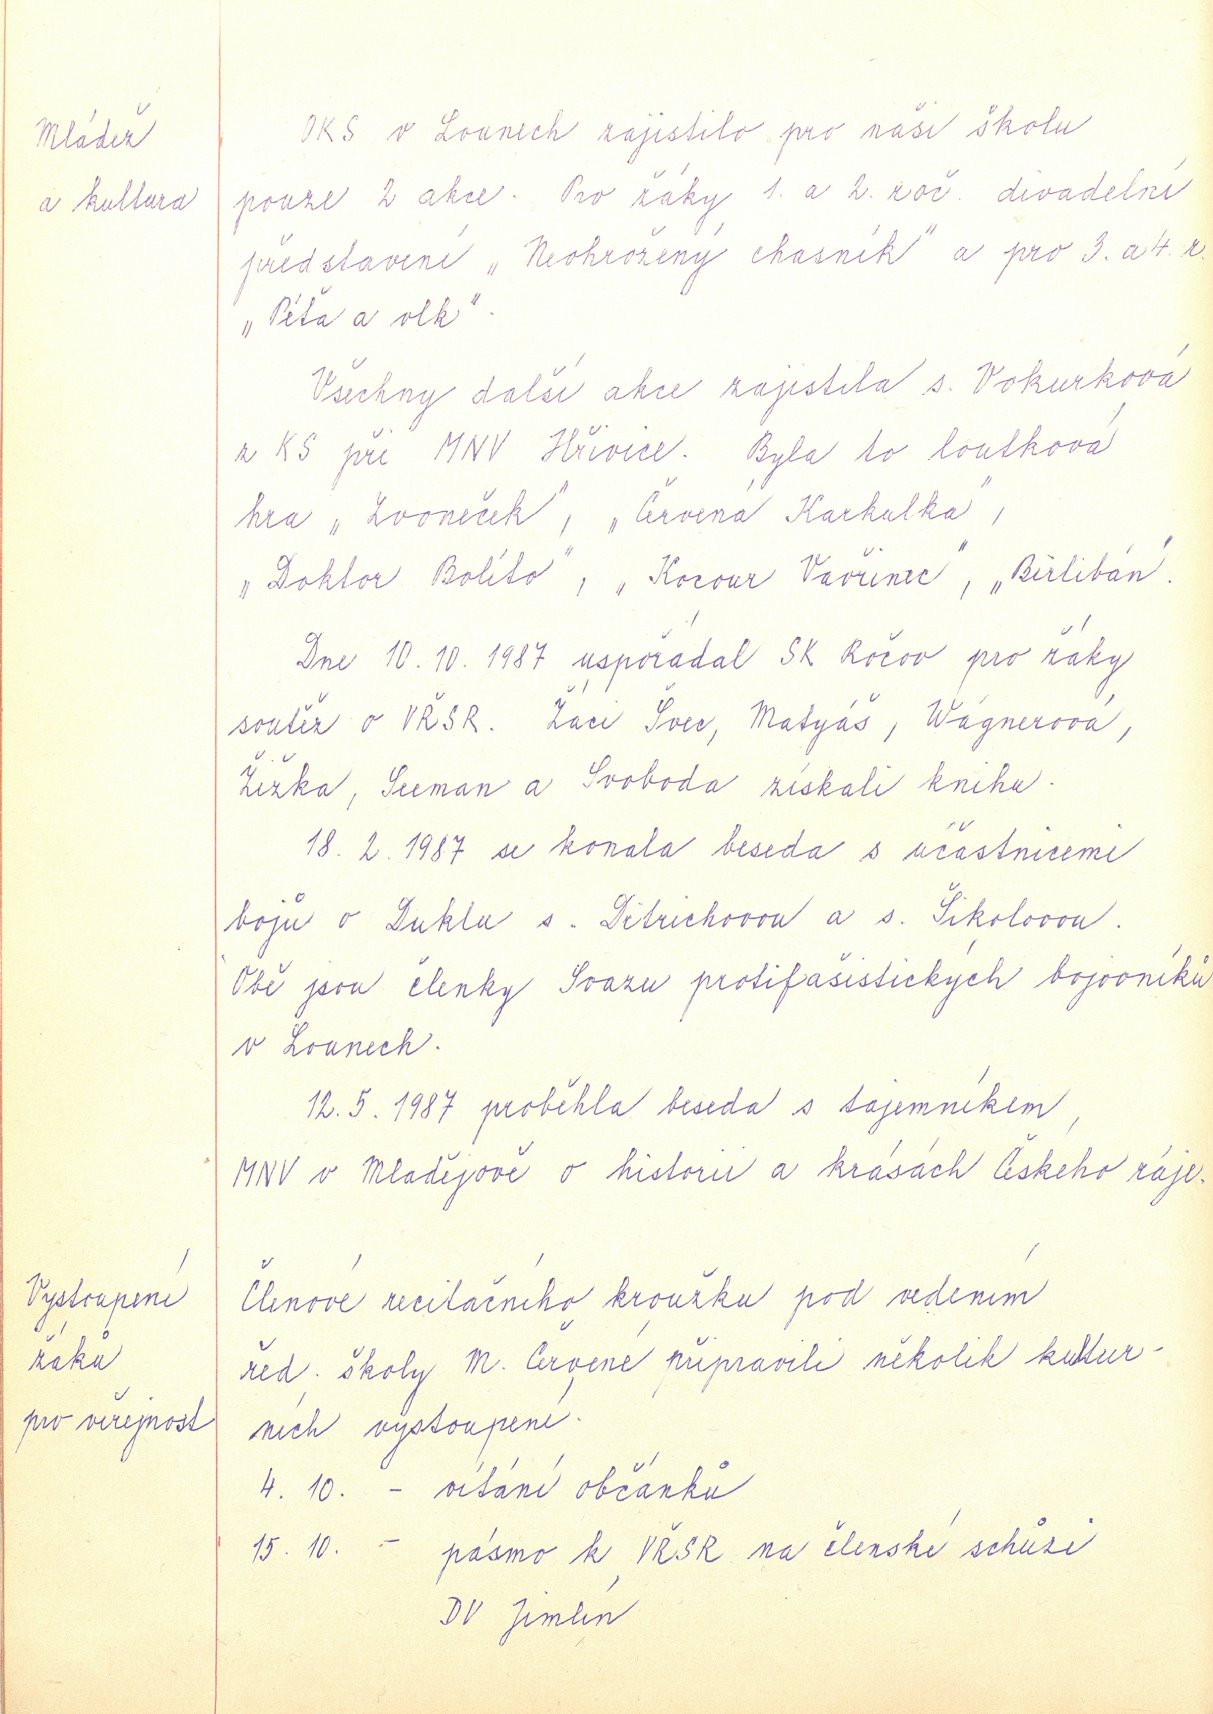 Mládež
a kultura
OKS v Lounech zajistilo pro naši školu
pouze 2 akce. Pro žáky 1. a 2. roč. divadelní
představení „Neohrožený chasník" a pro 3. a 4. r.
„Péťa a vlk".
Všechny další akce zajistila s. Vokurková
z KS při MNV Hřivice. Byla to loutková
hra „Zvoneček", „Červená Karkulka",
„Doktor Bolíto", „Kocour Vavřinec", „Birlibán".
Dne 10. 10. 1987 uspořádal SK Ročov pro žáky
soutěž o VŘSR. Žáci Švec, Matyáš, Wágnerová,
Žižka, Seeman a Svoboda získali knihu.
18. 2. 1987 se konala beseda s účastnicemi
bojů o Duklu s. Ditrichovou a s. Šikolovou.
Obě jsou členky Svazu protifašistických bojovníků
v Lounech.
12. 5. 1987 proběhla beseda s tajemníkem
MNV v Mladějově o historii a krásách Českého ráje.
Vystoupení
žáků
pro veřejnost
Členové recitačního kroužku pod vedením
řed. školy M. Červené připravili několik kultur-
ních vystoupení.
4. 10. - vítání občánků
15. 10. - pásmo k VŘSR na členské schůzi
DV Jimlín